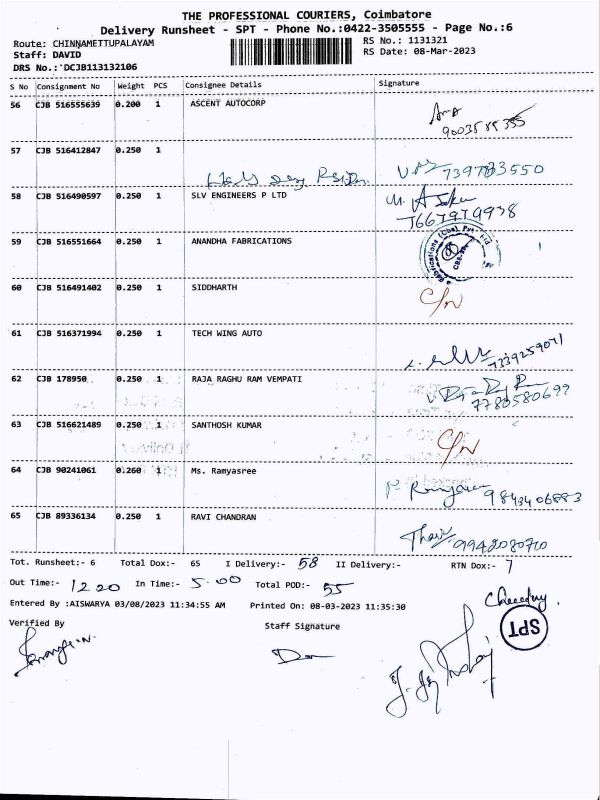 THE PROFESSIONAL COURIERS, Coimbatore
Delivery Runsheet - SPT - Phone No.:0422-3505555 - Page No.:6
Route: CHINNAMETTUPALAYAM
RS No.: 1131321
Staff: DAVID
RS Date: 08-Mar-2023
DRS No.: DCJB113132106
S No Consignment No Weight PCS Consignee Details Signature
56 CJB 516555639 0.200 1 ASCENT AUTOCORP
57 CJB 516412847 0.250 1
58 CJB 516490597 0.250 1 SLV ENGINEERS P LTD
7667979938
59 CJB 516551664 0.250 1 ANANDHA FABRICATIONS
60 CJB 516491402 0.250 1 SIDDHARTH C/N
61 CJB 516371994 0.250 1 TECH WING AUTO
7339259071
62 CJB 178950 0.250 1 RAJA RAGHU RAM VEMPATI
7780580699
63 CJB 516621489 0.250 1 SANTHOSH KUMAR C/N
64 CJB 90241061 0.260 1 Ms. Ramyasree
9843406883
65 CJB 89336134 0.250 1 RAVI CHANDRAN
9942080710
Tot. Runsheet:- 6 Total Dox:- 65 I Delivery:- 58 II Delivery:- RTN Dox:- 7
Out Time:- 12 20 In Time:- 5.00 Total POD:- 55
Entered By :AISWARYA 03/08/2023 11:34:55 AM Printed On: 08-03-2023 11:35:30
Verified By Staff Signature
SPT